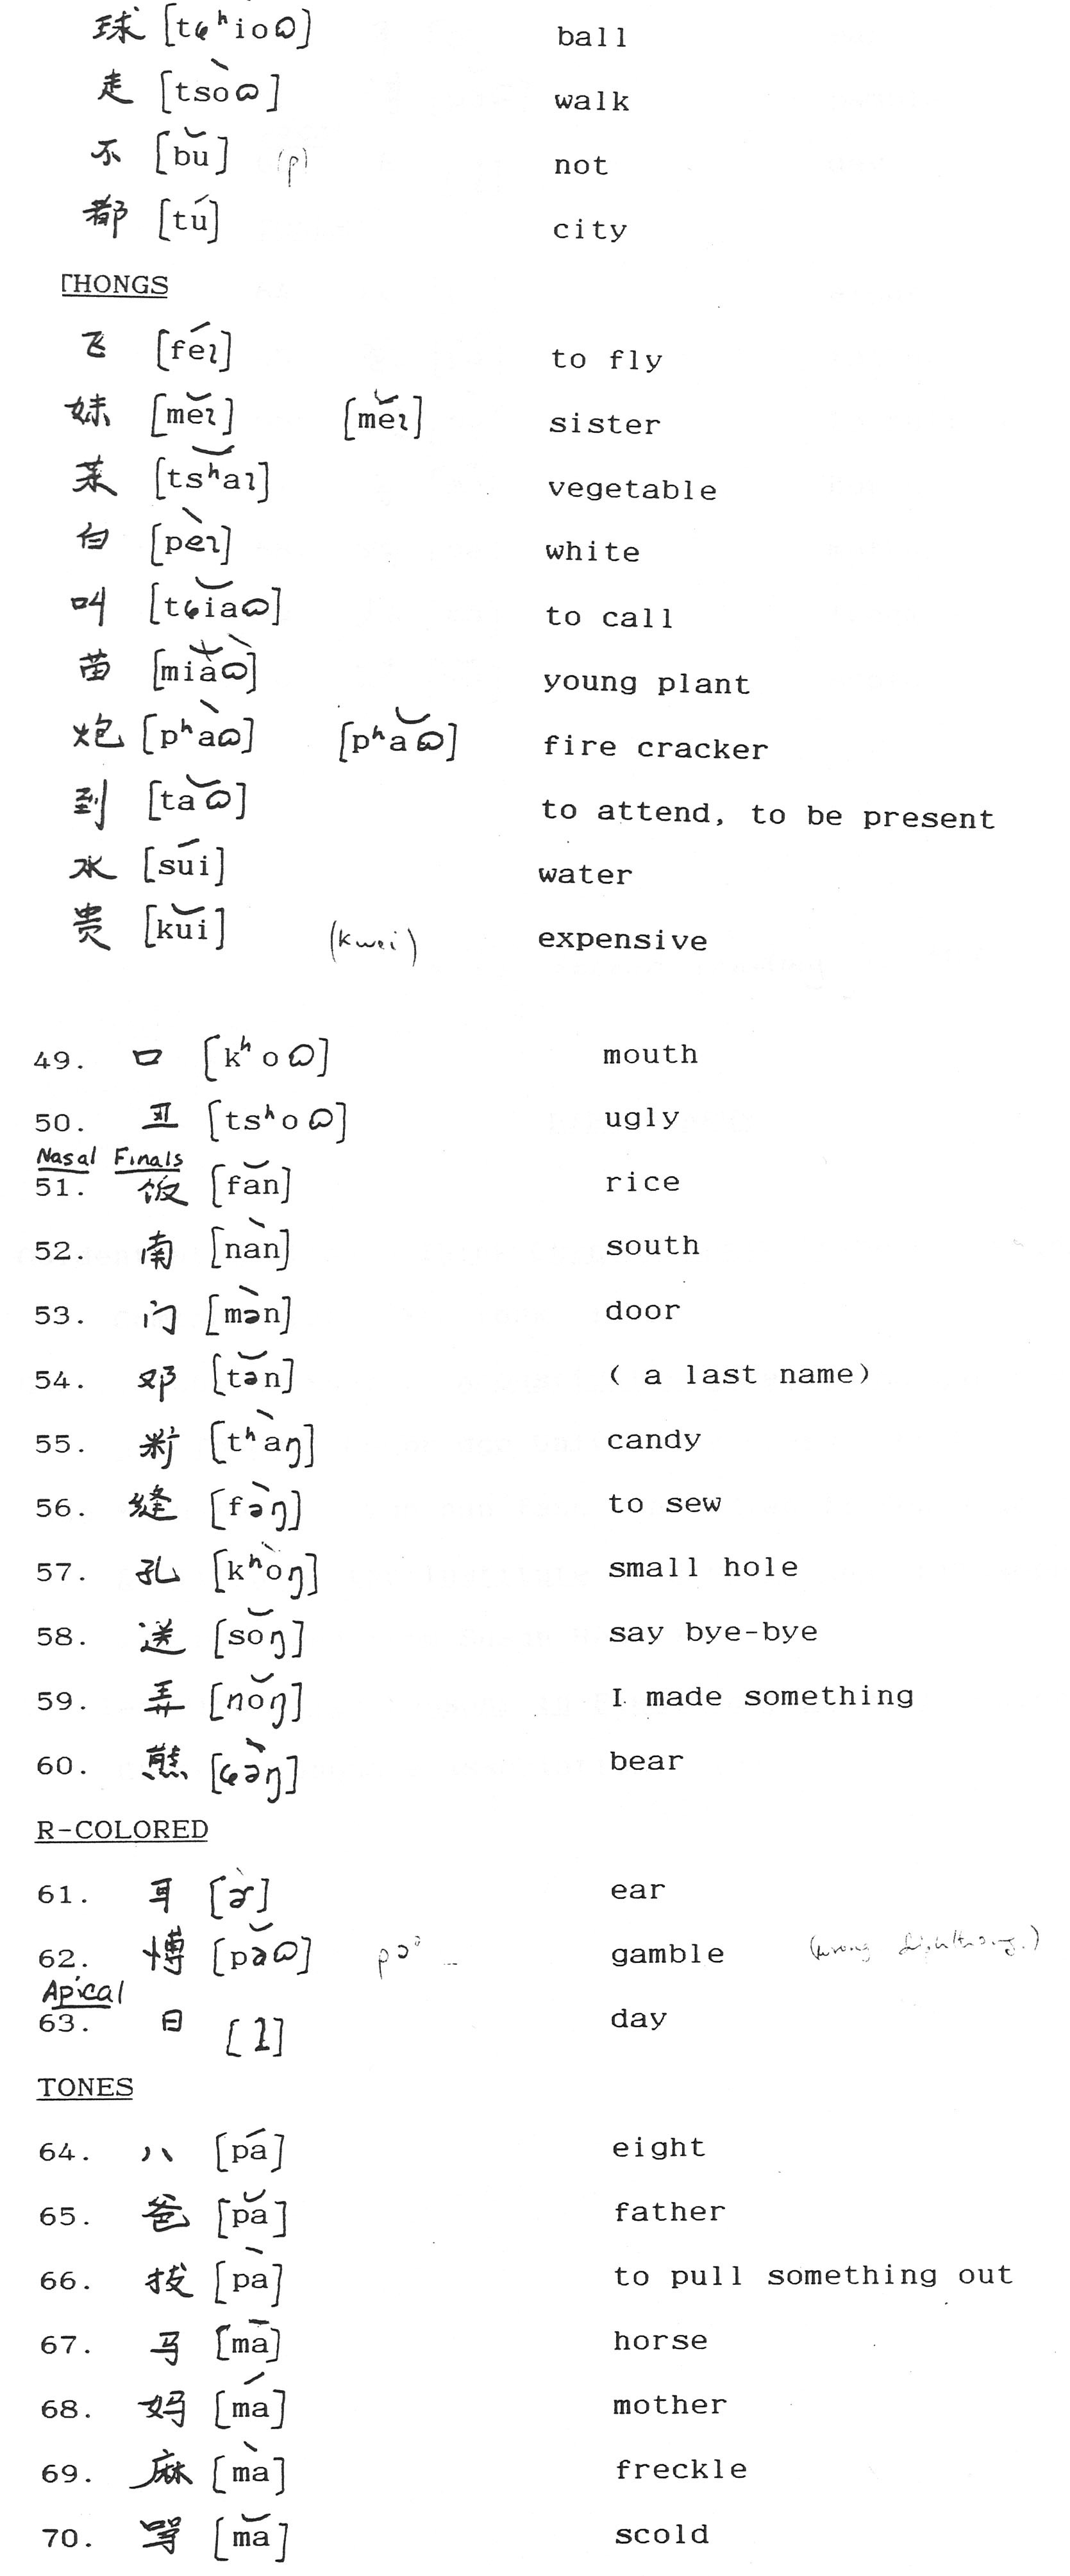 球 [tɕʰioɷ] ball
走 [tsòɷ] walk
不 [bŭ] (p) not
都 [tú] city
THONGS
飞 [féɪ] to fly
妹 [mĕɪ] [mĕɪ] sister
菜 [tsʰăɪ] vegetable
白 [pèɪ] white
叫 [tɕĭaɷ] to call
苗 [miàɷ] young plant
炮 [pʰàɷ] [pʰăɷ] fire cracker
到 [tăɷ] to attend, to be present
水 [súi] water
贵 [kŭi] (kwei) expensive
49. 口 [kʰoɷ] mouth
50. 丑 [tsʰoɷ] ugly
Nasal Finals
51. 饭 [făn] rice
52. 南 [nàn] south
53. 门 [mə̀n] door
54. 邓 [tə̆n] ( a last name)
55. [tʰàŋ] candy
56. 缝 [fə̀ŋ] to sew
57. 孔 [kʰòŋ] small hole
58. 送 [sŏŋ] say bye-bye
59. 弄 [nŏŋ] I made something
60. 熊 [ɕə̀ŋ] bear
R-COLORED
61. 耳 [ɚ̀] ear
62. 博 [pə̆ɷ] gamble (wrong diphthong.)
Apical
63. 日 [ʅ] day
TONES
64. 八 [pá] eight
65. 爸 [pă] father
66. 拔 [pà] to pull something out
67. 马 [mā] horse
68. 妈 [má] mother
69. 麻 [mà] freckle
70. 骂 [mă] scold